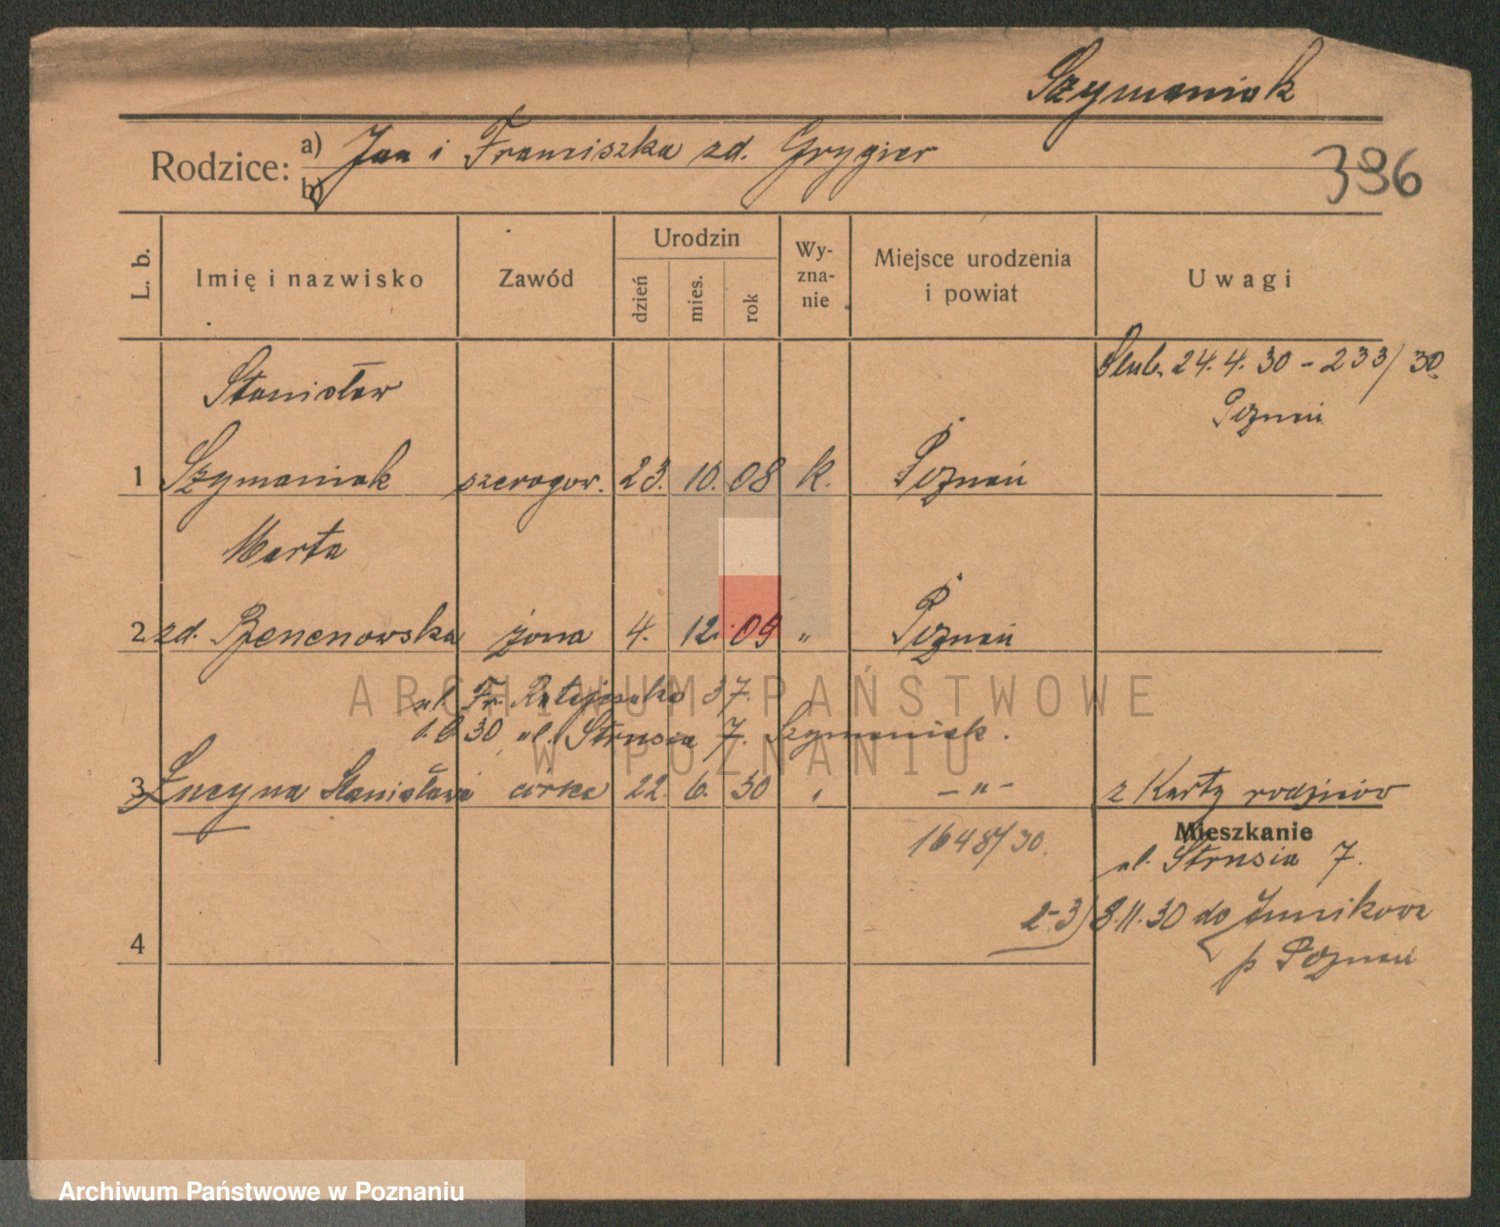 Szymaniak
Rodzice: a) Jan i Franciszka zd. Grygier
b)
396
L. b.
Imię i nazwisko
Zawód
Urodzin
dzień
mies.
rok
Wy-
zna-
nie
Miejsce urodzenia
i powiat
Uwagi
Ślub. 24. 4. 30 - 233/30.
Poznań
Stanisław
1 Szymaniak szeregow. 23. 10. 08 K. Poznań
Marta
2 zd. żona 4. 12. 09 " Poznań
ul. Fr. Ratajczaka 37.
1.6 30 ul. Strusia 7. Szymaniak.
3 Łucyna Stanisława córka 22. 6. 30 " - " - z Karty rodziców
1648/30.
Mieszkanie
ul. Strusia 7.
2-3) 8.11.30 do Junikowa
p Poznań
4
ARCHIWUM PAŃSTWOWE
W POZNANIU
Archiwum Państwowe w Poznaniu